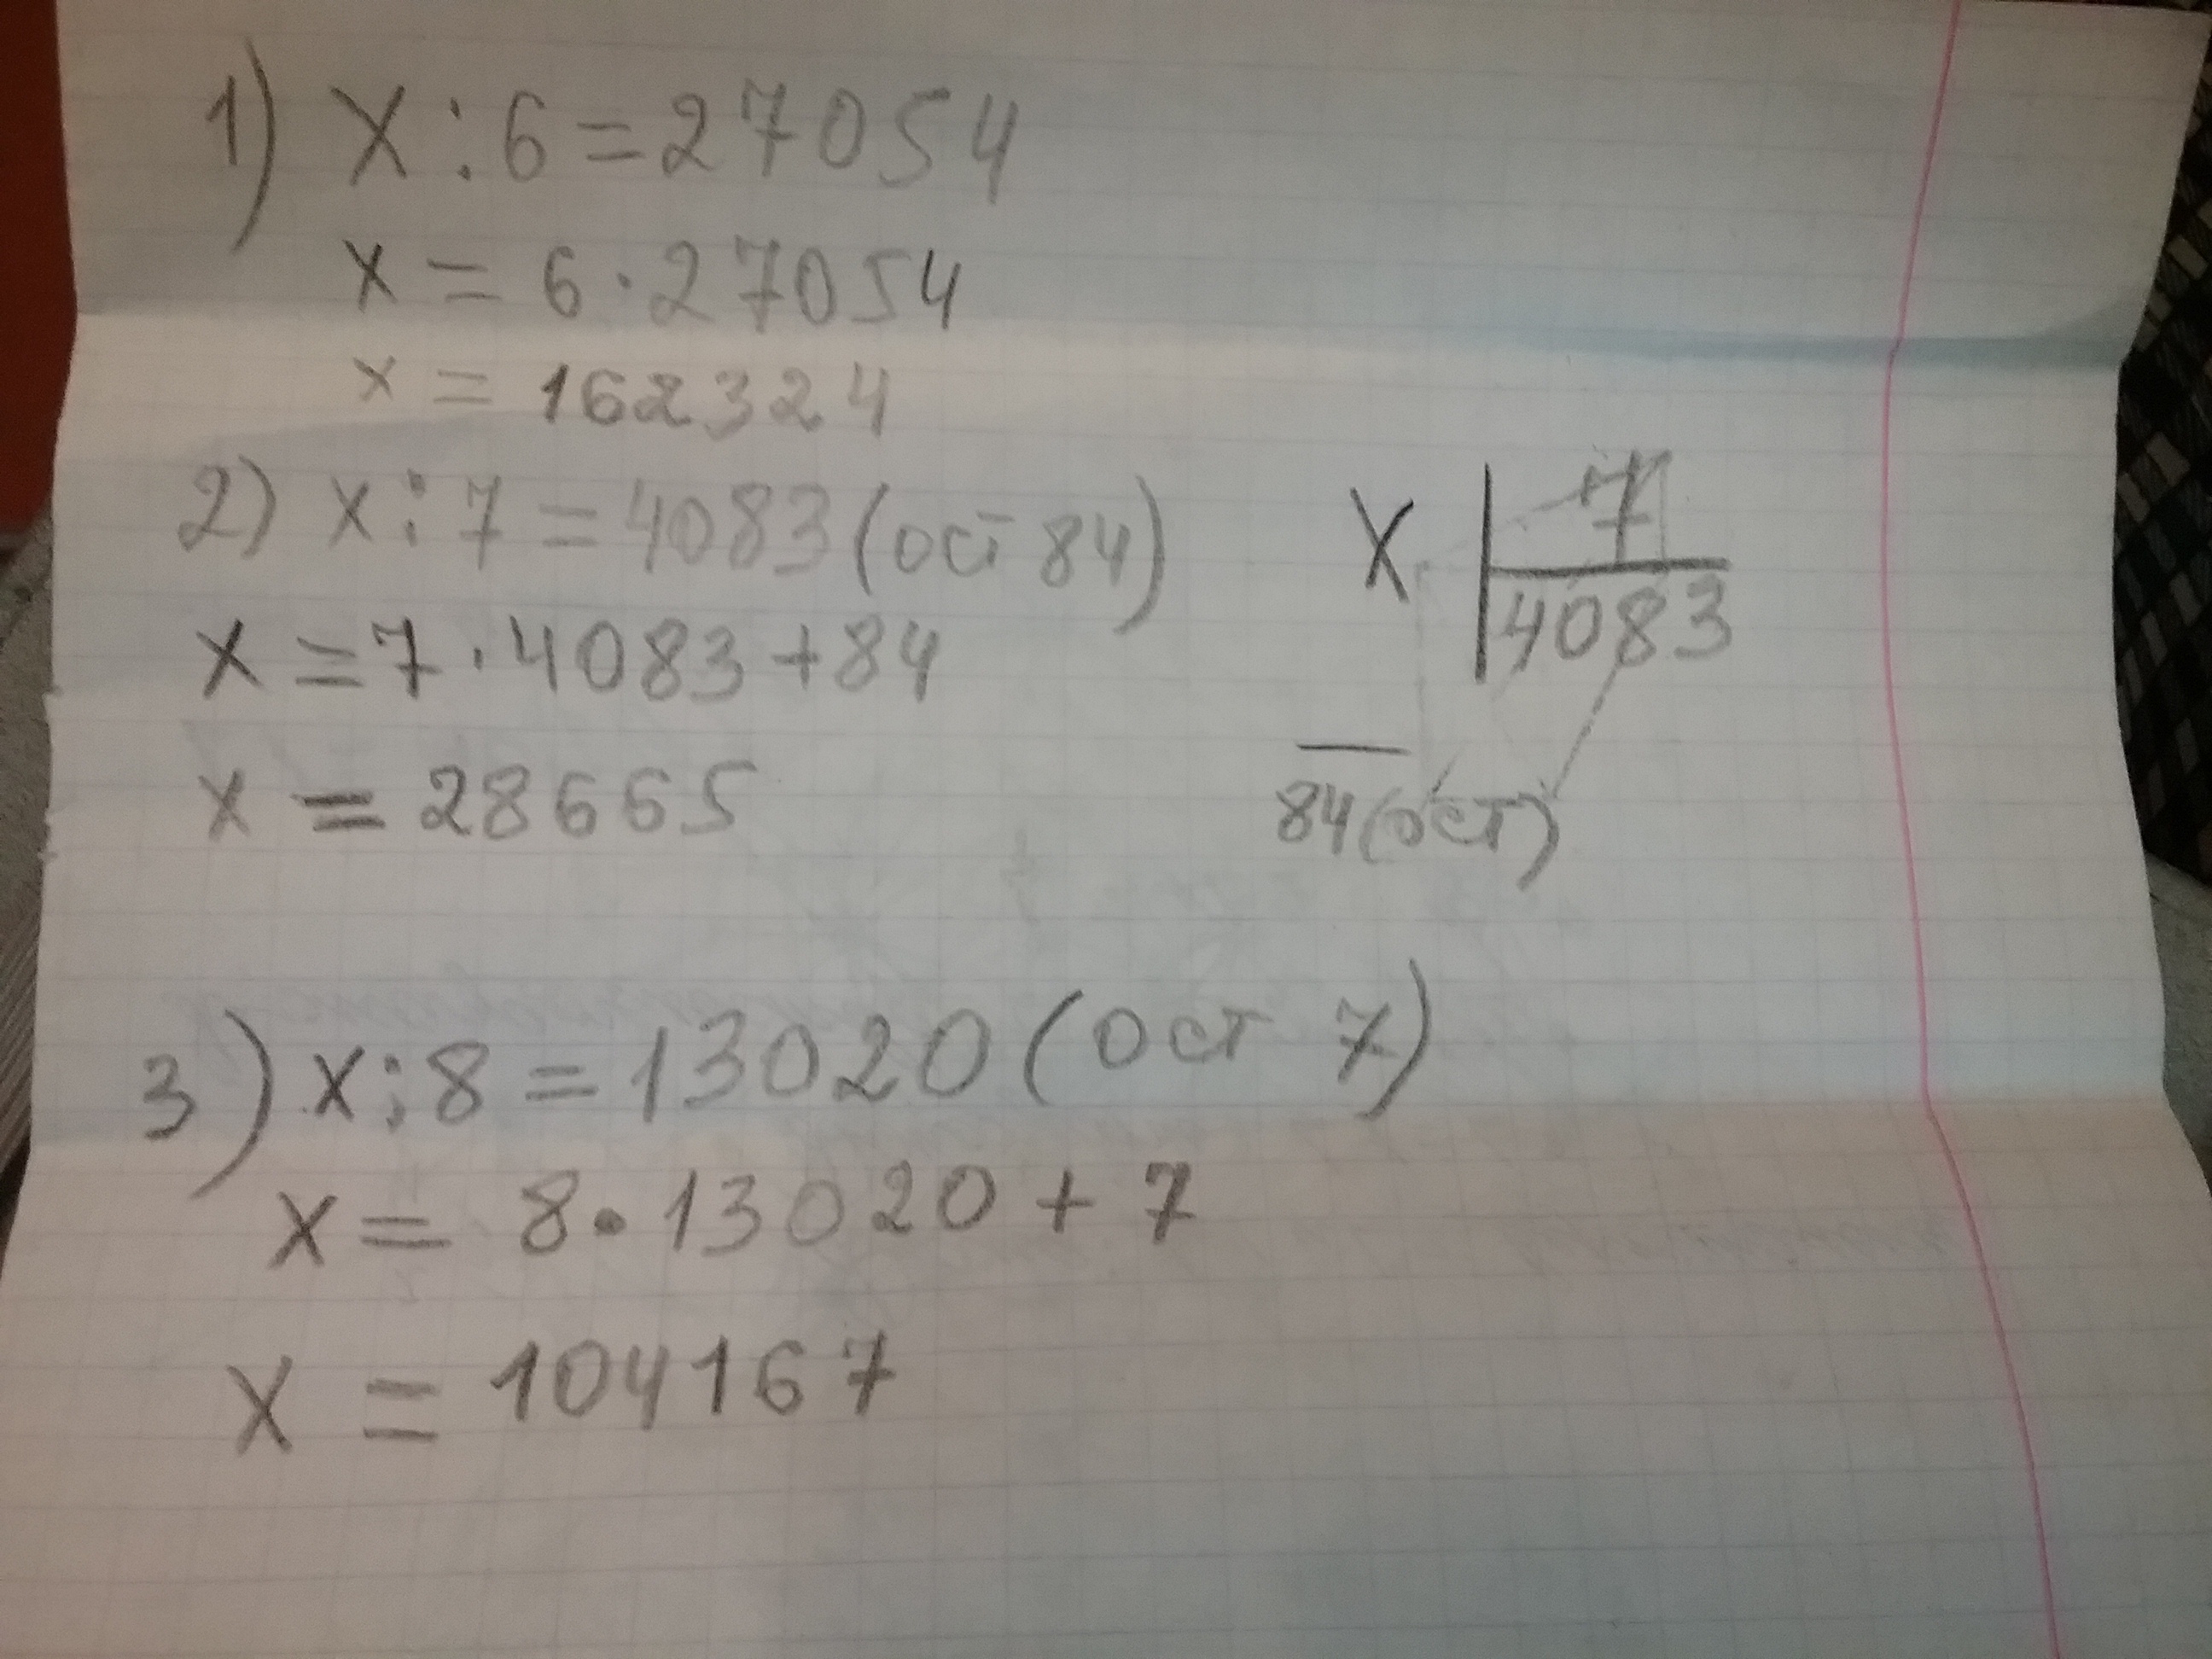 1) x : 6 = 27054
x = 6 · 27054
x = 162324
2) x : 7 = 4083 (ост 84)
x = 7 · 4083 + 84
x = 28665
x 7
4083
84 (ост)
3) x : 8 = 13020 (ост 7)
x = 8 · 13020 + 7
x = 104167